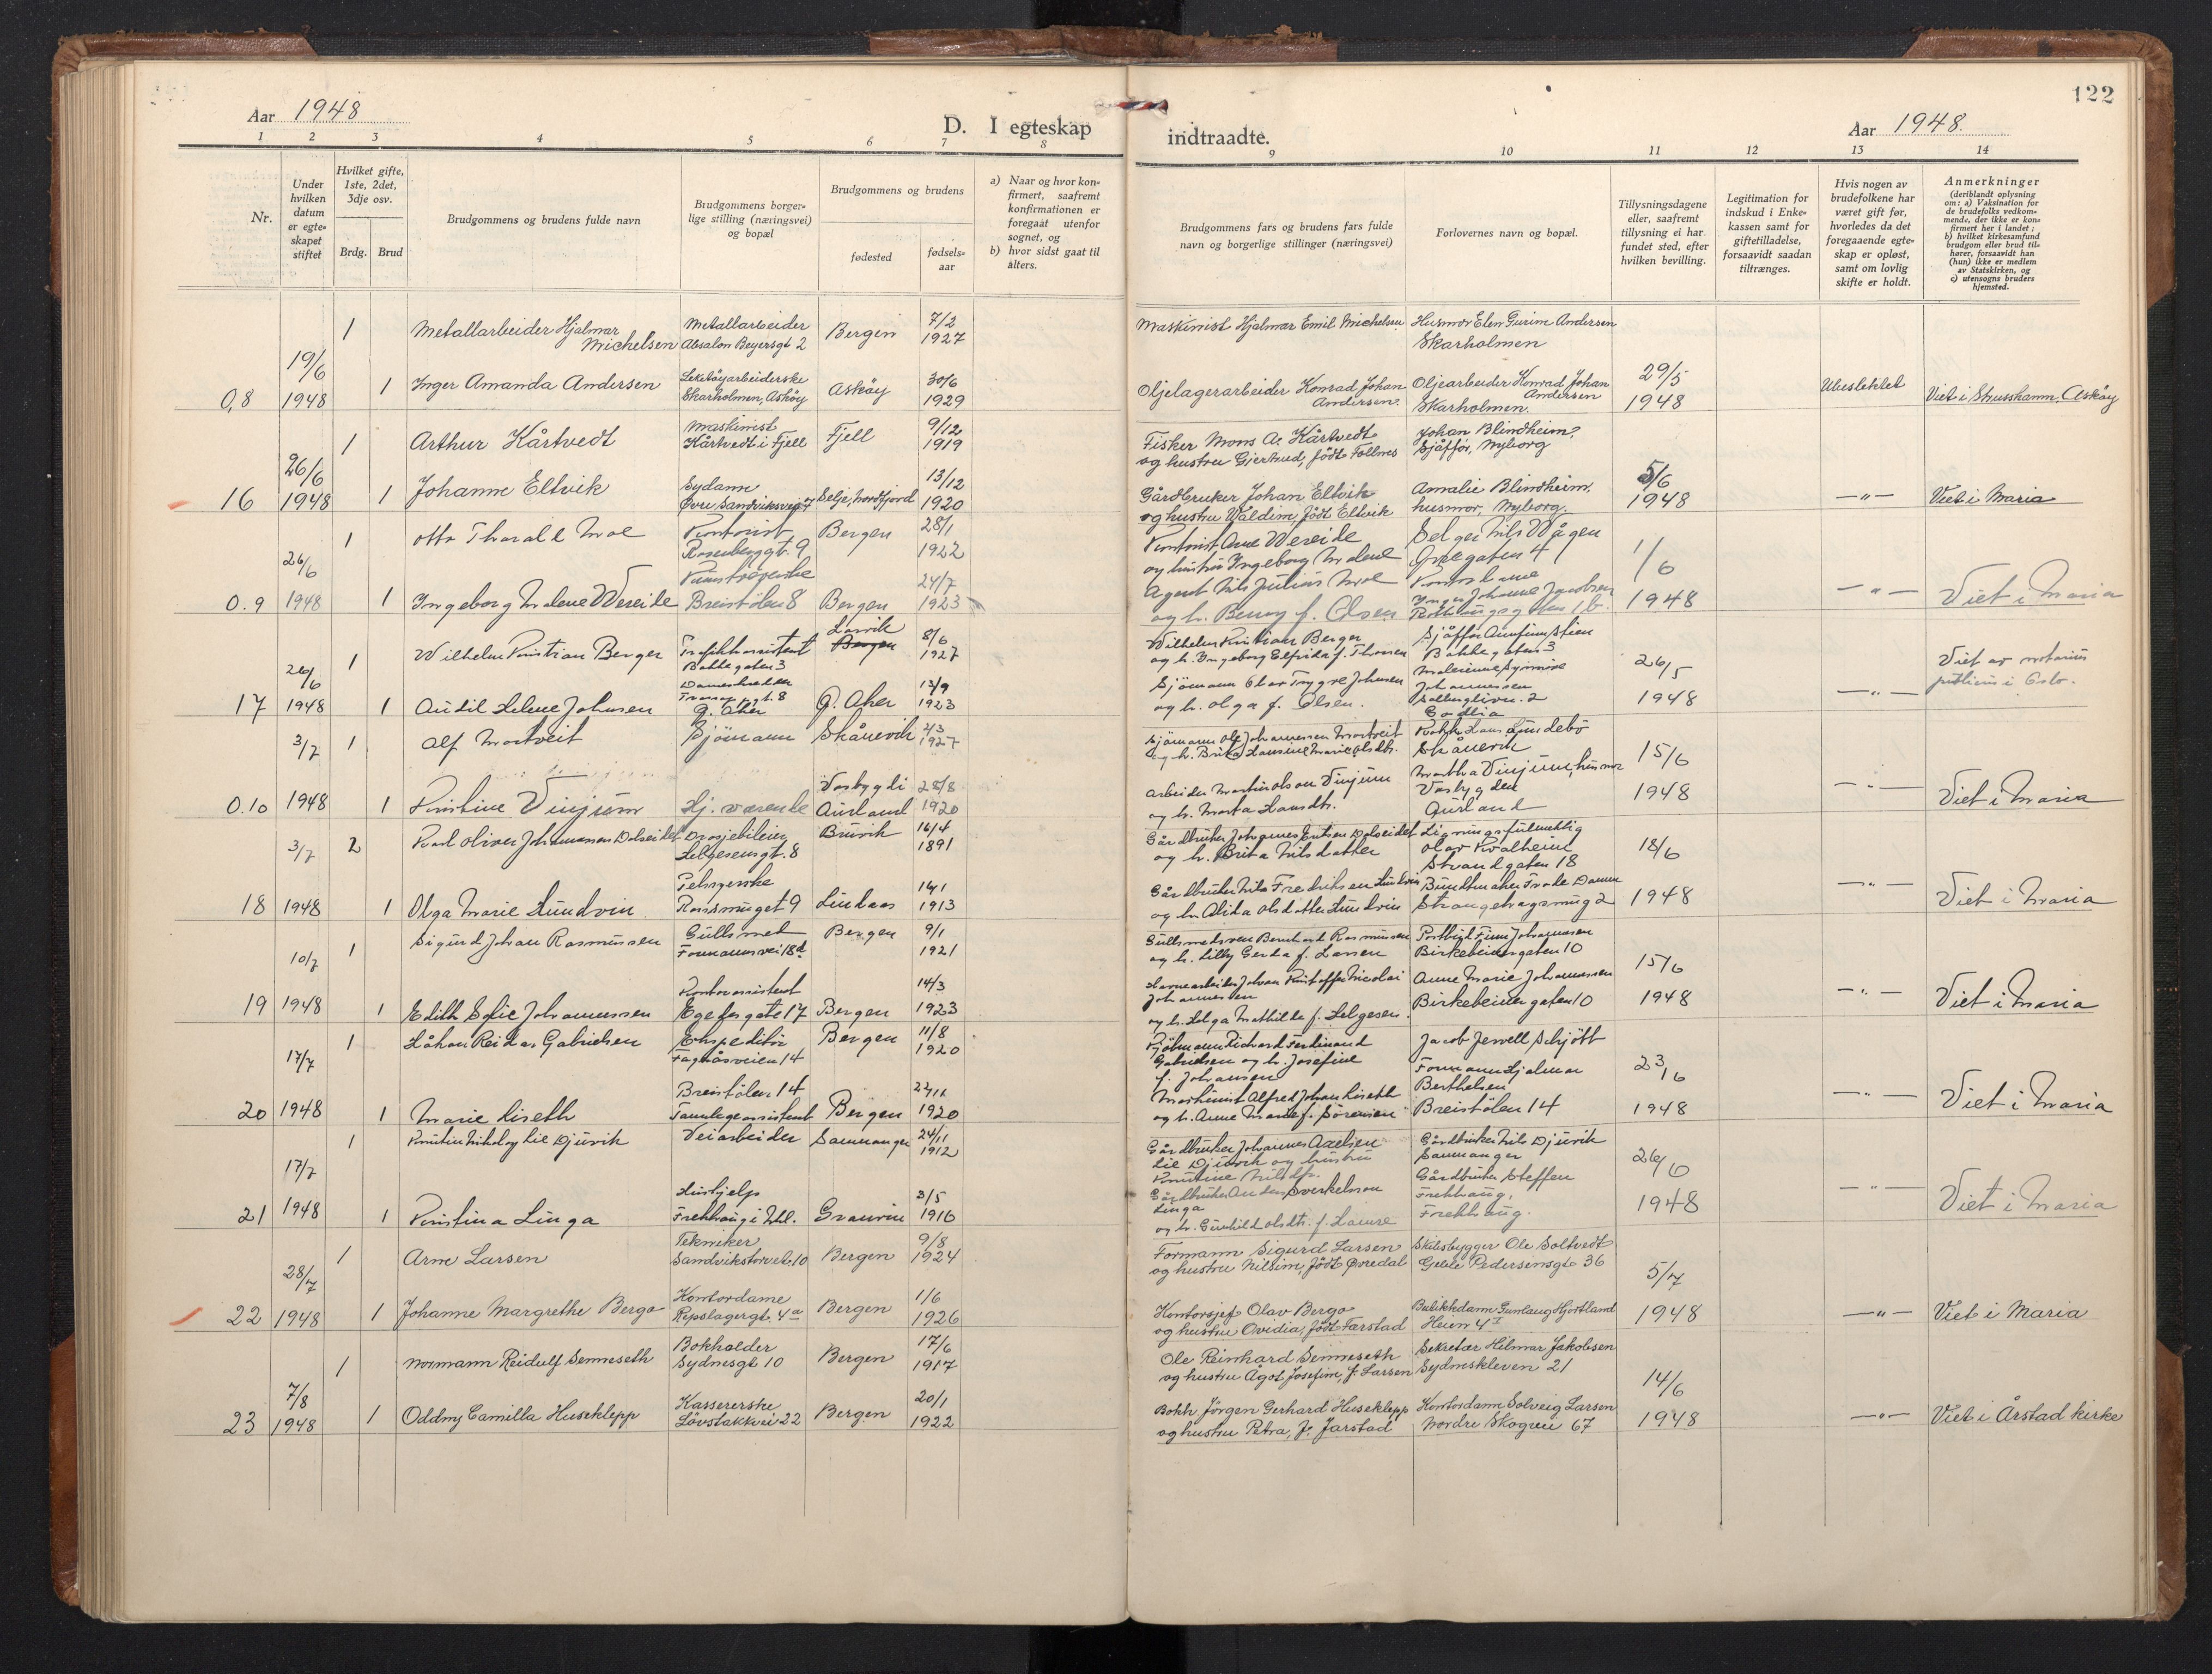 Aar 1948
D. I egteskap
indtraadte.
Aar 1948.
122
1 2 3 4 5 6 7 8 9 10 11 12 13 14
Nr.
Under hvilken datum er egte-skapet stiftet
Hvilket gifte, 1ste, 2det, 3dje osv.
Brdg. Brud
Brudgommens og brudens fulde navn
Brudgommens borger-lige stilling (næringsvei) og bopæl
Brudgommens og brudens
fødested
fødsels-aar
a) Naar og hvor kon-firmert, saafremt konfirmationen er foregaat utenfor sognet, og
b) hvor sidst gaat til alters.
Brudgommens fars og brudens fars fulde navn og borgerlige stillinger (næringsvei)
Forlovernes navn og bopæl.
Tillysningsdagene eller, saafremt tillysning ei har fundet sted, efter hvilken bevilling.
Legitimation for indskud i Enke-kassen samt for giftetilladelse, forsaavidt saadan tiltrænges.
Hvis nogen av brudefolkene har været gift før, hvorledes da det foregaaende egte-skap er opløst, samt om lovlig skifte er holdt.
Anmerkninger (deriblandt oplysning om: a) Vaksination for de brudefolks vedkom-mende, der ikke er kon-firmert her i landet; b) hvilket kirkesamfund brudgom eller brud til-hører, forsaavidt han (hun) ikke er medlem av Statskirken, og c) utensogns bruders hjemsted.
1 Metallarbeider Hjalmar Michelsen Metallarbeider Absalon Beyersgt 2 Bergen 7/2 1927 Maskinist Hjalmar Emil Michelsen Husmor Elen Gurine Andersen Skarholmen
0,8 19/6 1948 1 Inger Amanda Andersen Leketøyarbeiderske Skarholmen, Askøy Askøy 30/6 1929 Oljelagerarbeider Konrad Johan Andersen. Oljearbeider Konrad Johan Andersen Skarholmen. 29/5 1948 Ubeslektet Viet i Strusshamn, Askøy
1 Arthur Kårtvedt Maskinist Kårtvedt i Fjell Fjell 9/12 1919 Fisker Mons A. Kårtvedt og hustru Gjertrud, født Follnes Johan Blindheim, Sjåffør, Nyborg
16 26/6 1948 1 Johanne Eltvik Sydame Øvre Sandviksvei 47 Selje, Nordfjord 13/12 1920 Gårdbruker Johan Eltvik og hustru Waldine, født Eltvik Amalie Blindheim, husmor, Nyborg. 5/6 1948 —"— Viet i Maria
1 Otto Tharald Moe Kontorist Rosenberggt. 9 Bergen 28/1 1922 Kontorist Arne Wereide og hustru Ingeborg Malene Helger Nils Vågen 4
0.9 26/6 1948 1 Ingeborg Malene Wereide Breistølen 8 Bergen 24/7 1923 Agent Nils Julius Moe og h. Benny f. Olsen Kontordame Inger Johanne Jacobsen 1/6 1948 —"— Viet i Maria
1 Wilhelm Kristian Berger Trafikkassistent Bakkegaten 3 Larvik Bergen 8/6 1927 Wilhelm Kristian Berger og h. Ingeborg Elfrida f. Thorsen Sjåffør Bakkegaten 3
17 26/6 1948 1 Audil Helene Johnsen G. Aker G. Aker 13/9 1923 Sjømann Olav Trygve Johnsen og h. Olga f. Olsen. Johannessen Solbergliveien 2 Godlia 26/5 1948 —"— Viet av notarius publicus i Oslo.
3/7 1 Alf Matveit Sjømann Skånevik 2/3 1927 Sjømann Ole Johannessen Matveit og h. Brita Hansine Marie Olsdtr. Skånevik
0.10 1948 1 Kristine Vinjum Hj. værende Vasbygdi Aurland 28/8 1920 Arbeider Martin Olson Vinjum og h. Marta Hansdtr. Martha Vinjum, husmor Vasbygden Aurland 15/6 1948 —"— Viet i Maria
3/7 2 Karl Oliver Johannessen Dalseidet Drosjebileier Helgesensgt. 8 Bruvik 16/4 1891 Gårdbruker Johannes Dalseidet og h. Brita Nilsdatter Ligningsfullmektig Olav Kvalheim Strandgaten 18 18/6
18 1948 1 Olga Marie Lundvin Rosesmuget 9 Lindaas 14/1 1913 Gårdbruker Nils Fredriksen Lundvin og h. Alida Olsdatter Lundvin Buntmaker Frode Damm Strangehagsmug 2 1948 —"— Viet i Maria
10/7 1 Sigurd Johan Rasmussen Gullsmed Formannsvei 18d Bergen 9/1 1921 Gullsmedsven Bernhard Rasmussen og h. Lilly Gerda f. Larsen Postbud Finn Johannessen Birkebeinergaten 10 15/6
19 1948 1 Edith Sofie Johannessen Kontorassistent Egefesgate 17 Bergen 14/3 1923 Havnearbeider Johan Kristoffer Nicolai Johannessen og h. Helga Mathilde f. Helgesen. Anne Marie Johannessen Birkebeinergaten 10 1948 —"— Viet i Maria
17/7 1 Håkon Reidar Gabrielsen Ekspeditør Fagåsveien 14 Bergen 11/8 1920 Kjølmann Richard Ferdinand Gabrielsen og h. Josefine f. Johansen Jacob Jervell Schjøtt
20 1948 1 Marie Liseth Breistølen 14 Tannlegeassistent Bergen 22/11 1920 Maskinist Alfred Johan Liseth og h. Anne Marie f. Sørensen Formann Hjalmar Berthelsen Breistølen 14 23/6 1948 —"— Viet i Maria
17/7 1 Kristen Nikolay Lie Djuvik Veiarbeider Samnanger 24/11 1912 Gårdbruker Johannes Axelsen Lie Djuvik og hustru Kristine Nilsdtr. Gårdbruker Nils Djuvik Samnanger 26/6
21 1948 1 Kristina Linga Hushjelp Frekhaug i Mel. Granvin 3/5 1916 Gårdbruker Anders Sverkelsson Linga og h. Gunhild Olsdtr. f. Lauve Gårdbruker Steffen Frekhaug, Frekhaug. 1948 —"— Viet i Maria
1 Arne Larsen Tekniker Sandvikstorvet 10 Bergen 9/8 1924 Formann Sigurd Larsen og hustru Nilsine, født Øvredal Skibsbygger Ole Soltvedt Gjeble Pedersensgt 36
22 28/7 1948 1 Johanne Margrethe Bergo Kontordame Repslagergt. 4a Bergen 1/6 1926 Kontorsjef Olav Bergo og hustru Ovidia, født Farstad Butikkdame Gunlaug Hjortland Heien 4I 5/7 1948 —"— Viet i Maria
1 Normann Reidulf Senneseth Bokholder Sydnesgt 10 Bergen 17/6 1917 Ole Reinhard Senneseth og hustru Ågot Josefine, f. Larsen Sekretær Helmar Jakobsen Sydneskleven 21
23 7/8 1948 1 Oddny Camilla Huseklepp Kassererske Løvstakkvei 22 Bergen 20/1 1922 Bokh Jørgen Gerhard Huseklepp og hustru Petra, f. Jarstad Kontordame Solveig Larsen Nordre Skogvei 67 14/6 1948 —"— Viet i Årstad kirke